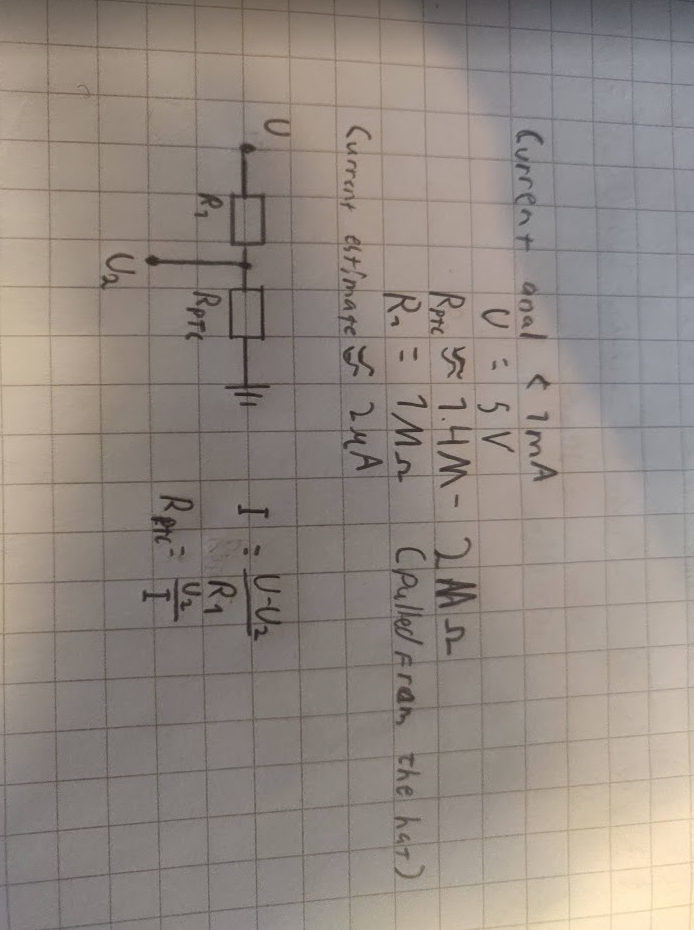 Current goal < 1mA
U = 5V
Rptc ≈ 1.4M - 2MΩ
R1 = 1MΩ (pulled from the hat)
Current estimate ≈ 2μA
U
R1
Rptc
U2
I = U-U2 / R1
Rptc = U2 / I